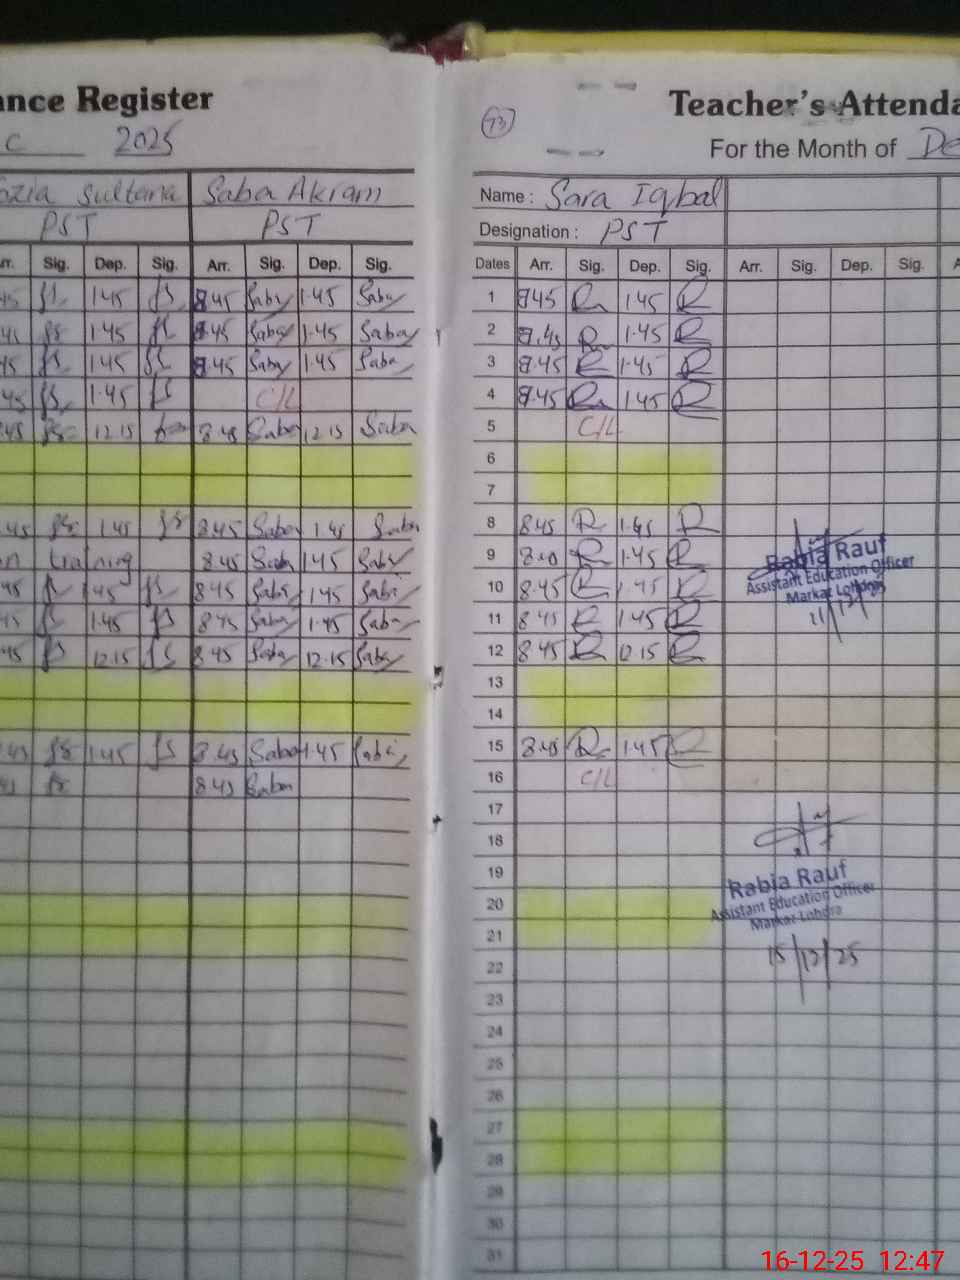 nce Register
c 2025
zia Sultana Saba Akram
PST PST
rr. Sig. Dep. Sig. Arr. Sig. Dep. Sig.
45 1.45 8.45 Saba 1.45 Saba
45 1.45 8.45 Saba 1.45 Saba
45 1.45 8.45 Saba 1.45 Saba
45 1.45 C/L
8.45 12.15 8.45 Saba 12.15 Saba
.45 1.45 8.45 Saba 1.45 Saba
n training 8.45 Saba 1.45 Saba
45 1.45 8.45 Saba 1.45 Saba
45 1.45 8.45 Saba 1.45 Saba
45 12.15 8.45 Saba 12.15 Saba
.45 1.45 8.45 Saba 1.45 Saba
45 8.45 Saba
73
Teacher's Attenda
For the Month of De
Name : Sara Iqbal
Designation : PST
Dates Arr. Sig. Dep. Sig. Arr. Sig. Dep. Sig. A
1 1.45
2 1.45
3 1.45
4 1.45
5 C/L
6
7
8 8.45 1.45
9 1.45
10 8.45 1.45
11 8.45 1.45
12 8.45 12.15
13
14
15 8.45 1.45
16 C/L
17
18
19
20
21
22
23
24
25
26
27
28
29
30
31
Rabia Rauf
Assistant Education Officer
Markaz Lohdra
11/12/25
Rabia Rauf
Assistant Education Officer
Markaz Lohdra
15/12/25
16-12-25 12:47